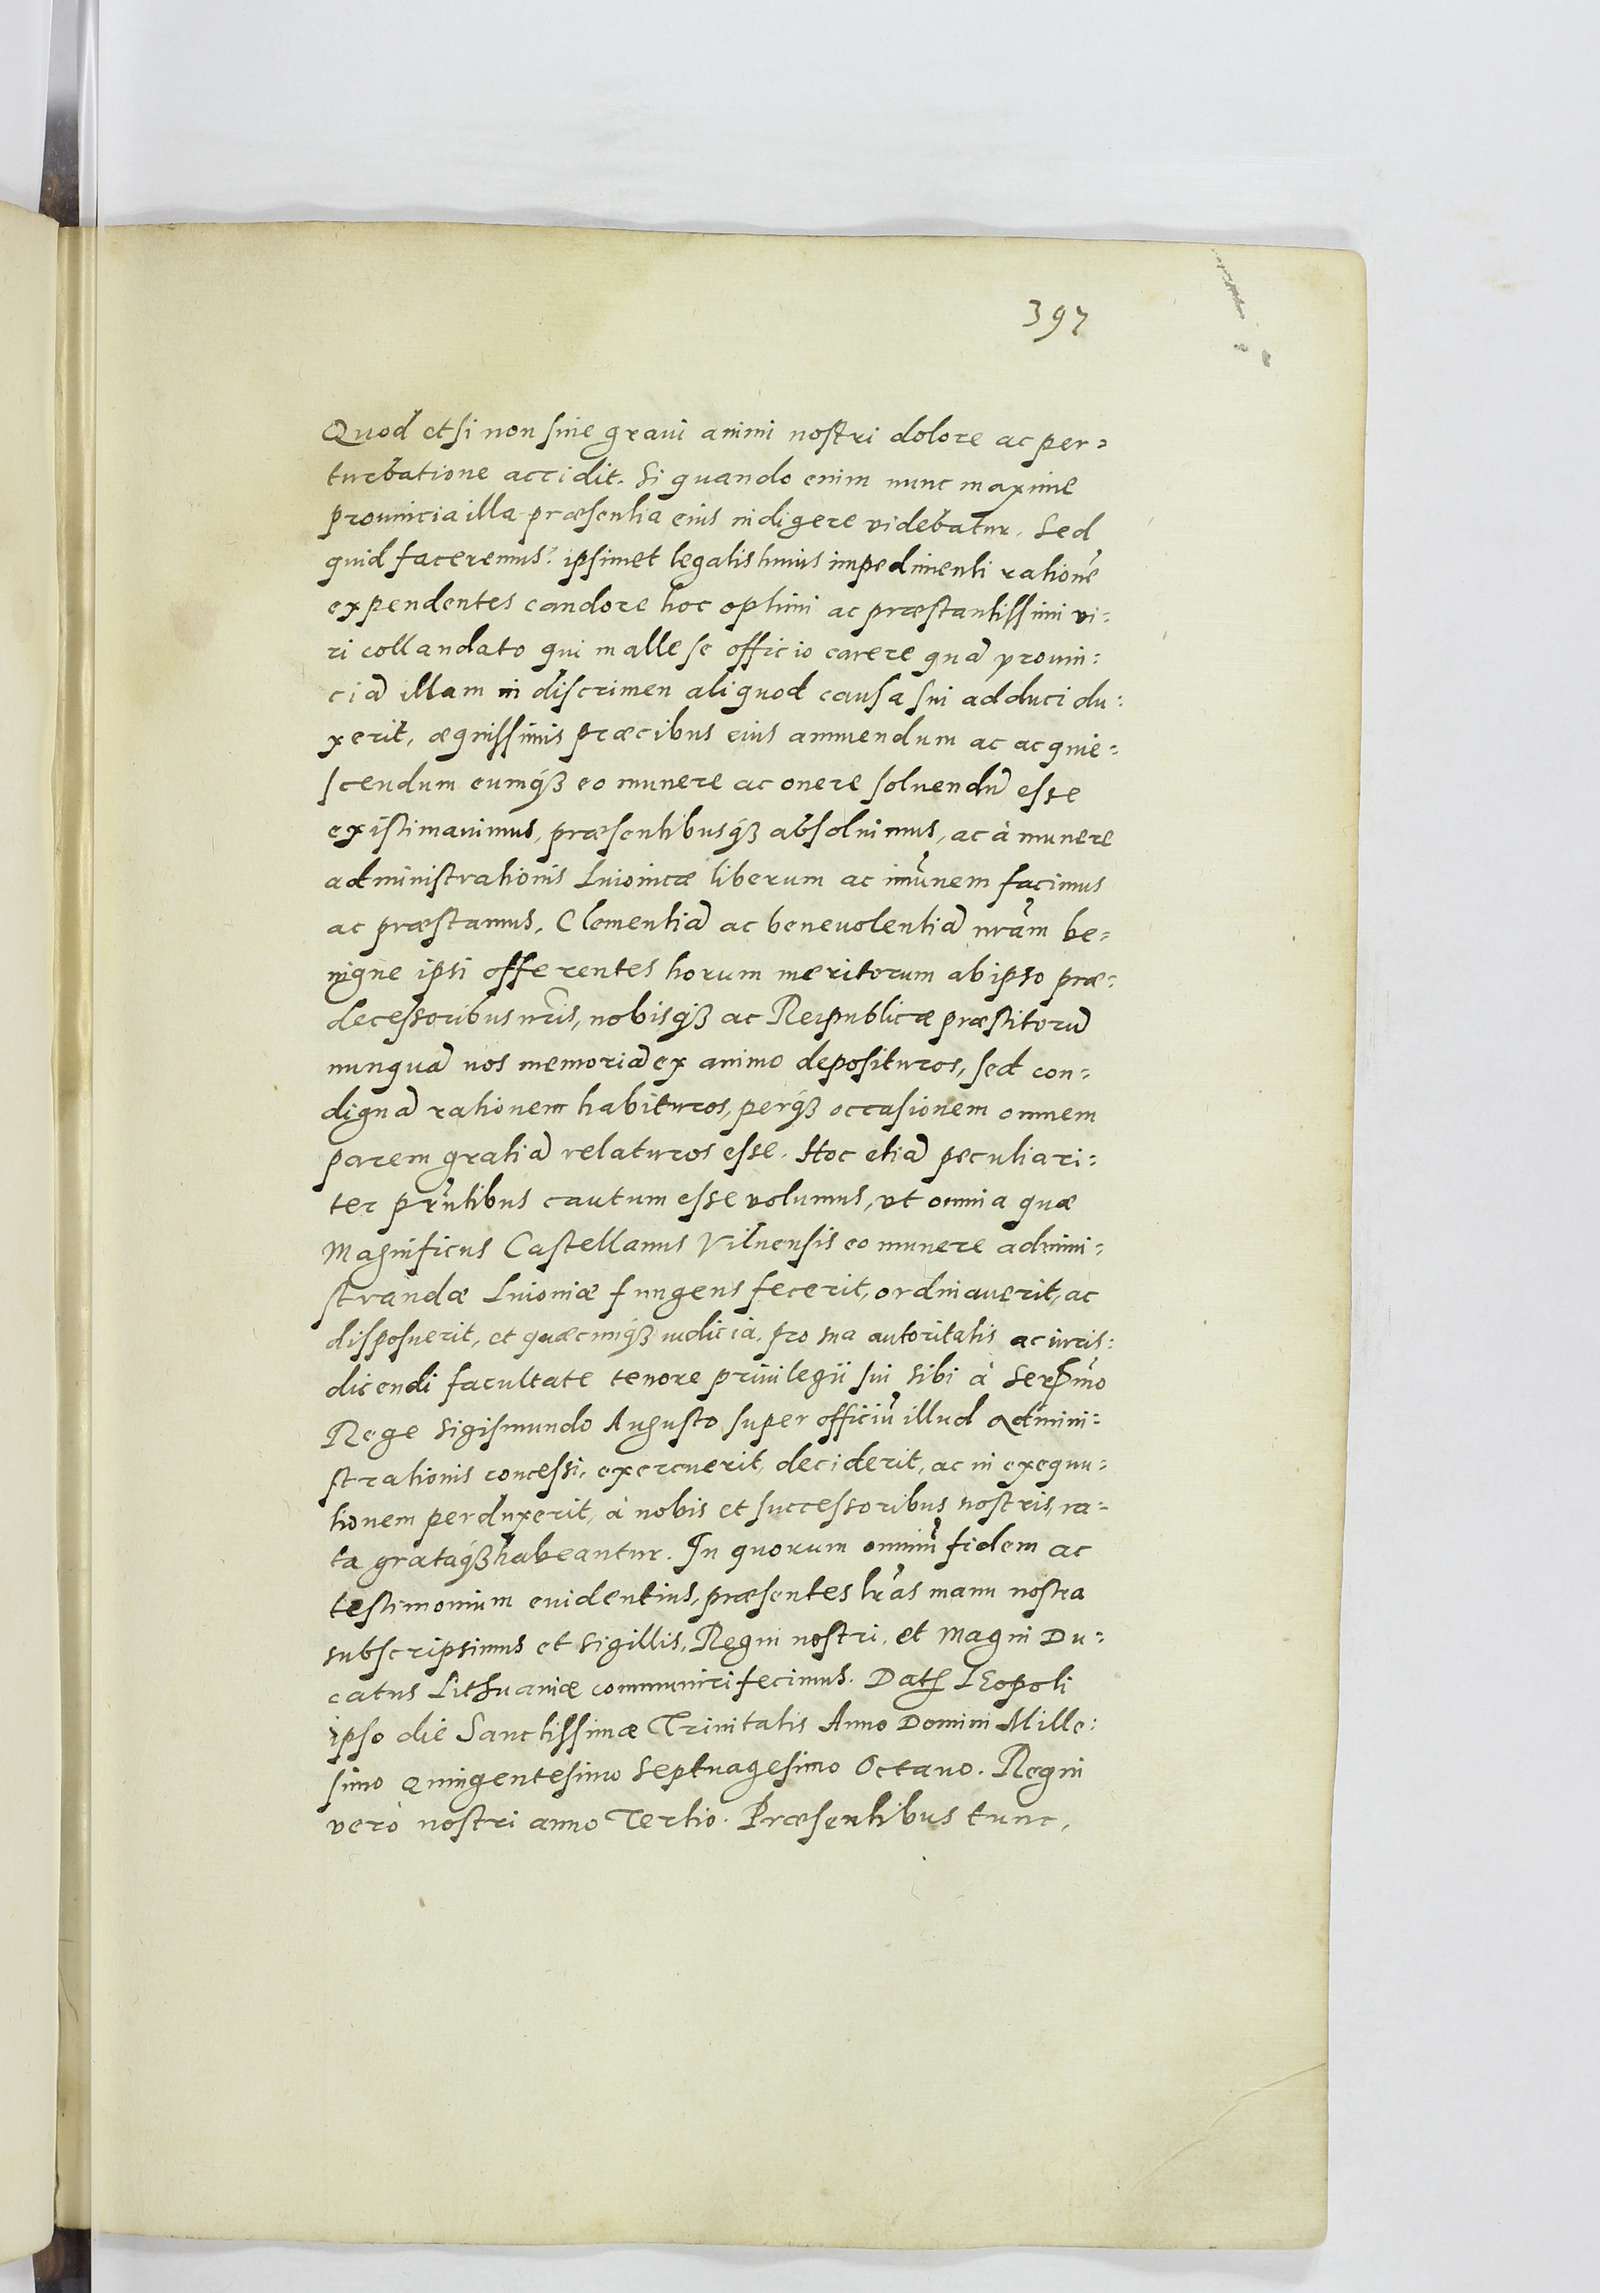 397
Quod etsi non sine graui animi nostri dolore ac per=
turbatione accidit. Si quando enim nunc maxime
prouincia illa præsentia eius indigere videbatur. Sed
quid faceremus? ipsimet legalis huius impedimenti rationē
expendentes candore hoc optimi ac præstantissimi vi=
ri collaudato qui malle se officio carere quā prouin=
ciā illam in discrimen aliquod causa sui adduci du=
xerit, æquissimis præcibus eius annuendum ac acquie=
scendum eumq́ꝫ eo munere ac onere soluendū esse
existimauimus, præsentibusq́ꝫ absoluimus, ac à munere
administrationis Liuonicæ liberum ac im̄unem facimus
ac præstamus, Clementiā ac beneuolentiā nr̄am be=
nigne ipsi offerentes horum meritorum ab ipso præ=
decessoribus nr̄is, nobisq́ꝫ ac Reipublicæ præstitorū
nunquā nos memoriā ex animo deposituros, sed con=
dignā rationem habituros, perq́ꝫ occasionem omnem
parem gratiā relaturos esse. Hoc etiā peculiari=
ter pr̄ntibus cautum esse volumus, vt omnia quæ
Magnificus Castellanus Vilnensis eo munere admini=
strandæ Liuoniæ fungens fecerit, ordinauerit, ac
disposuerit, et quæcunq́ꝫ iudicia, pro sua autoritatis ac iuris=
dicendi facultate tenore priuilegii sui sibi à Ser̄mo
Rege Sigismundo Augusto super officiū illud admini=
strationis concessi, exercuerit, deciderit, ac in exequu=
tionem perduxerit, à nobis et successoribus nostris, ra=
ta grataq́ꝫ habeantur. In quorum omniū fidem ac
testimonium euidentius, præsentes lr̄as manu nostra
subscripsimus et sigillis, Regni nostri, et Magni Du=
catus Lithuaniæ communiri fecimus. Datꝭ LEopoli
ipso die Sanctissimæ Trinitatis Anno Domini Mille=
simo Quingentesimo Septuagesimo Octauo. Regni
verò nostri anno Tertio. Præsentibus tunc,